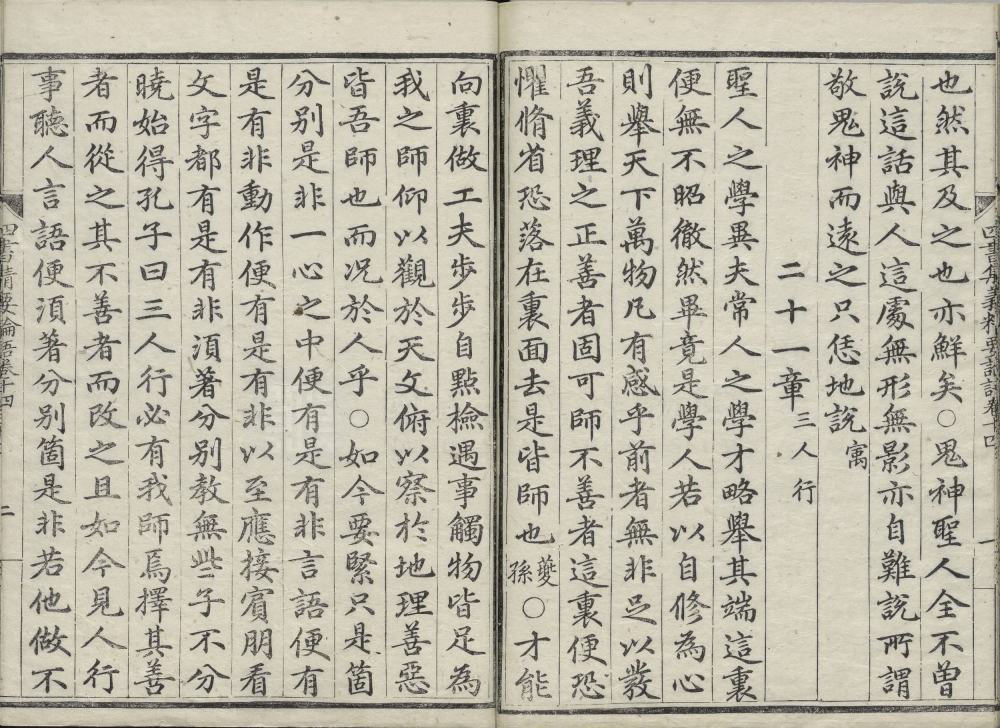 也然其及之也亦鮮矣○鬼神聖人全不曾
說這話與人這處無形無影亦自難說所謂
敬鬼神而遠之只恁地說寓
二十一章三人行
聖人之學異夫常人之學才略舉其端這裏
便無不昭徹然畢竟是學人若以自修為心
則舉天下萬物凡有感乎前者無非足以發
吾義理之正善者固可師不善者這裏便恐
懼脩省恐落在裏面去是皆師也夔孫○才能
向裏做工夫步步自點檢遇事觸物皆足為
我之師仰以觀於天文俯以察於地理善惡
皆吾師也而况於人乎○如今要緊只是箇
分別是非一心之中便有是有非言語便有
是有非動作便有是有非以至應接賓朋看
文字都有是有非須著分别教無些子不分
曉始得孔子曰三人行必有我師焉擇其善
者而從之其不善者而改之且如今見人行
事聽人言語便須著分别箇是非若他做不
四書精要論語卷十四
二